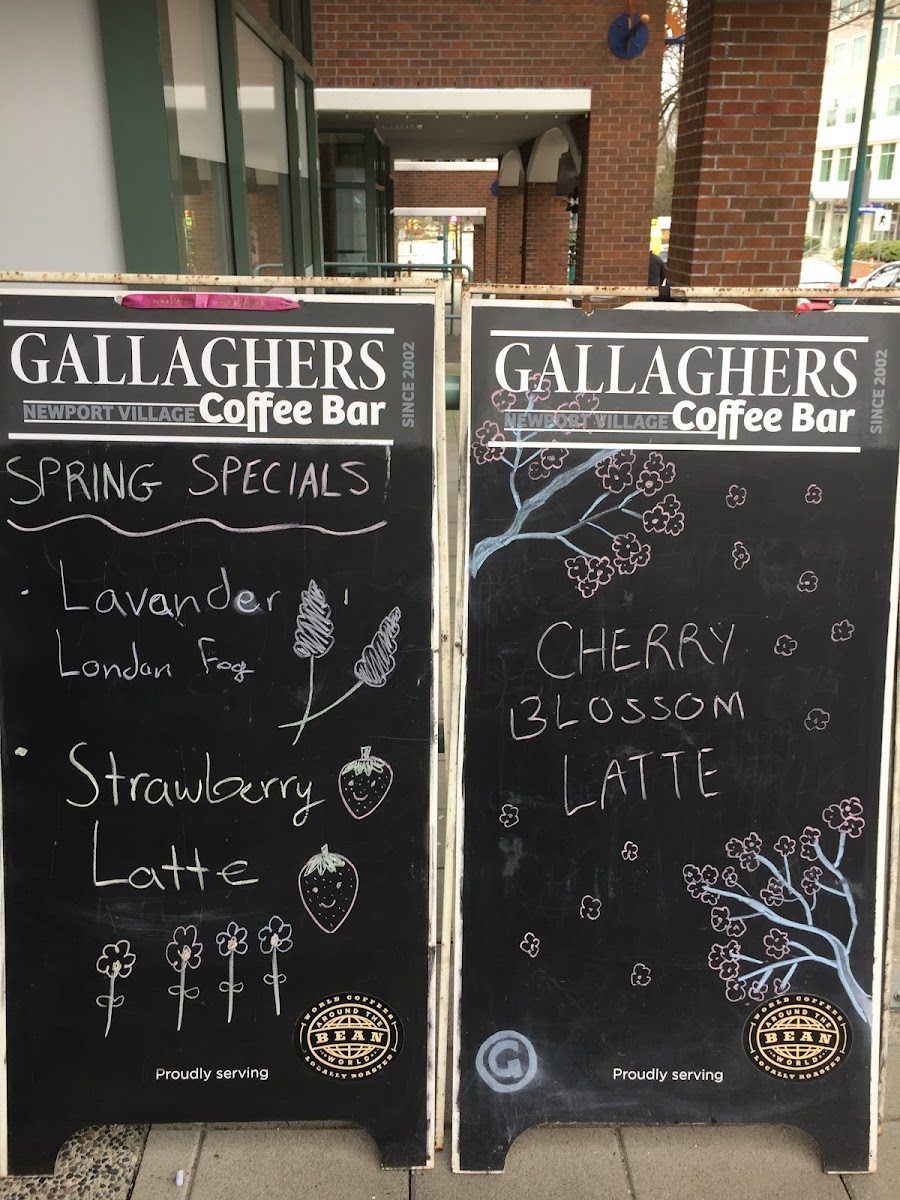 GALLAGHERS
NEWPORT VILLAGE Coffee Bar
SINCE 2002
SPRING SPECIALS
· Lavander
London Fog
· Strawberry
Latte
Proudly serving
WORLD COFFEE
AROUND THE
BEAN
WORLD
LOCALLY ROASTED
GALLAGHERS
NEWPORT VILLAGE Coffee Bar
SINCE 2002
CHERRY
BLOSSOM
LATTE
G
Proudly serving
WORLD COFFEE
AROUND THE
BEAN
WORLD
LOCALLY ROASTED